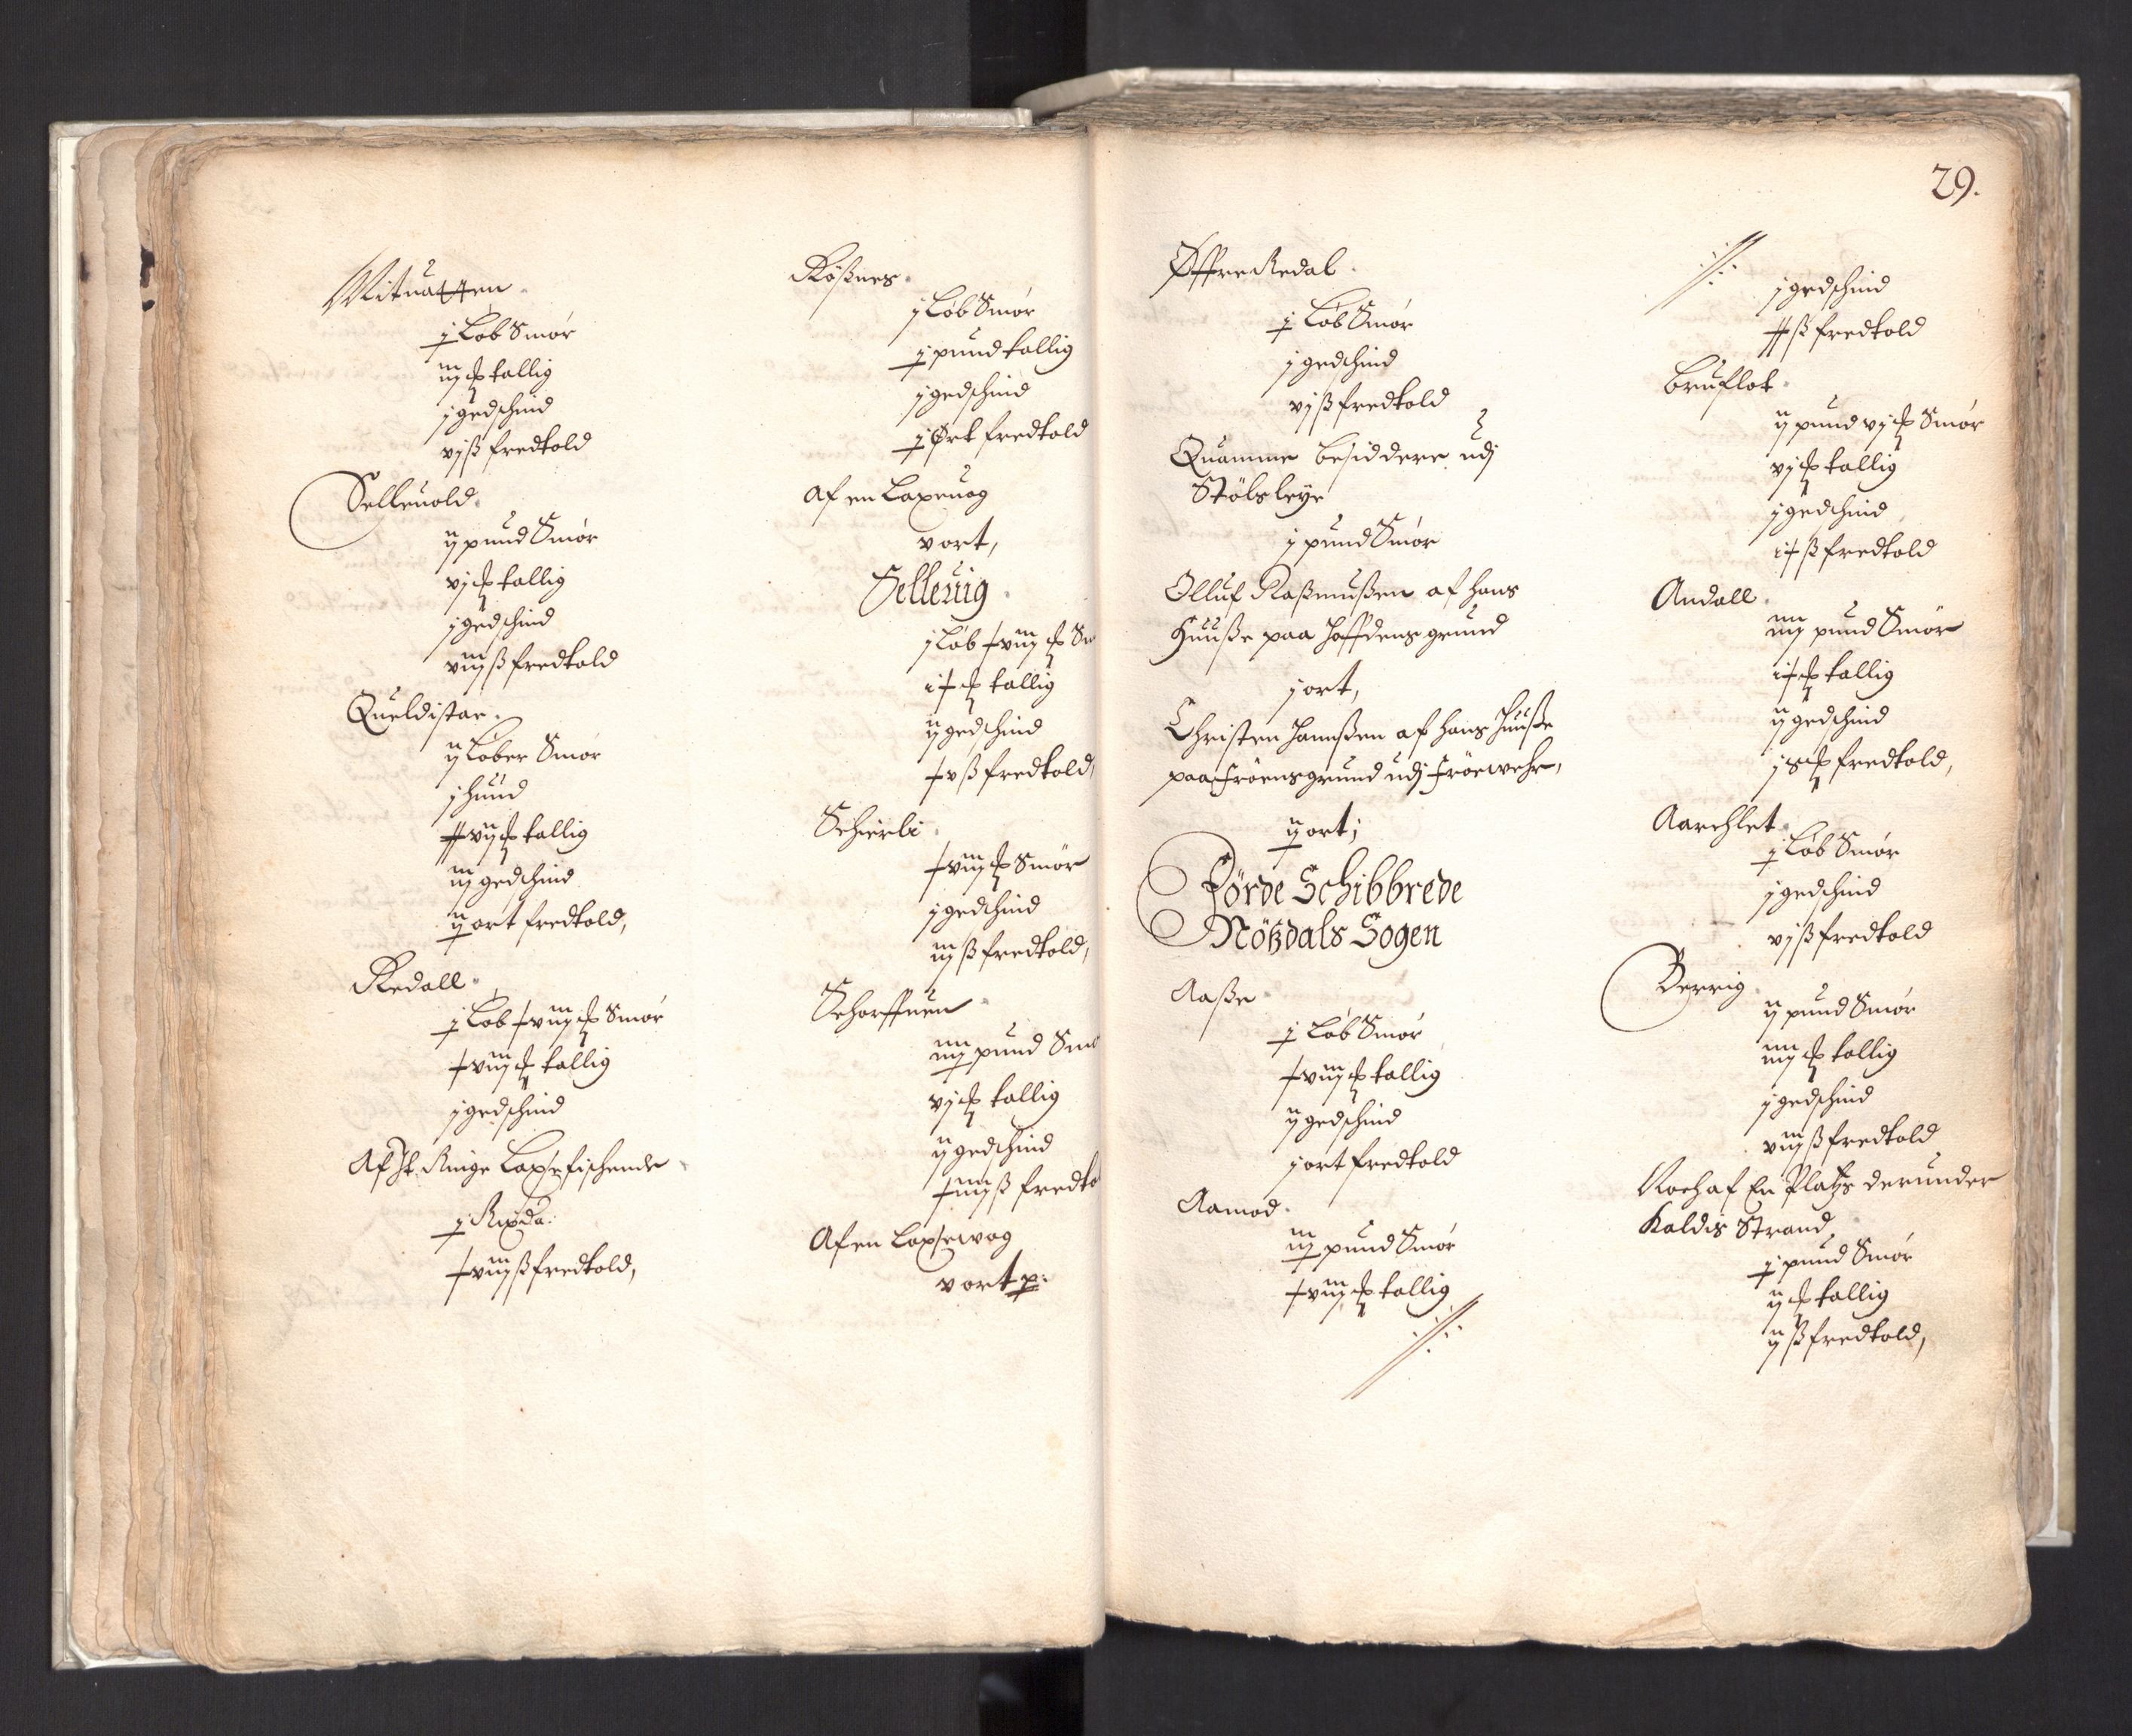 Mituatten
j Løb Smör
iij ℔ tallig
j gedschind
vj ß fredtold
Selleuold
ij pund Smör
vj ℔ tallig
j gedschind
viij ß fredtold
Queldistar
ij Løber Smör
j hund
xxvij ℔ tallig
iij gedschind
ij ort fredtold,
Redall
j Løb xviij ℔ Smör
xviij ℔ tallig
j gedschind
Af It Ringe Laxefischende
j Rixda:
xviij ß fredtold,
Rößnes
j Løb Smör
j pund tallig
j gedschind
j Ørt fredtold
Af en Laxeuog
v ort,
Selleuig
j Løb xviij ℔ Sm
ix ℔ tallig
ij gedschind
xv ß fredtold,
Schierli
xviij ℔ Smör
j gedschind
iij ß fredtold,
Schorffuen
iiij pund Smö
vj ℔ tallig
ij gedschind
xiiij ß fredto
Af en Laxewog
v ort p:
29.
Øffre Redal
j Løb Smör
j gedschind
vj ß fredtold
Quamme besiddere udj
Stölsleye
j pund Smör
Olluf Raßmußen af hans
Huuße paa Hoffdens grund
j ort,
Christen Hanßen af hans Huuße
paa Fröens grund udj Fröewehr,
ij ort;
Förde Schibbrede
Nößdals Sogen
Aaße
j Løb Smör
xviij ℔ tallig
ij gedschind
j ort fredtold
Aamod
iij pund Smör
xviij ℔ tallig
j gedschind
xx ß fredtold
Bruflot
ij pund vj ℔ Smör
vj ℔ tallig
j gedschind
ix ß fredtold
Andall
iiij pund Smör
ix ℔ tallig
ij gedschind
fredtold,
Aarchlet
j Løb Smör
j gedschind
vj ß fredtold
Berrig
ij pund Smör
iiij ℔ tallig
j gedschind
viij ß fredtold
Noch af En Platz derunder
Kaldis Strand
j pund Smör
ij ℔ tallig
ij ß fredtold,